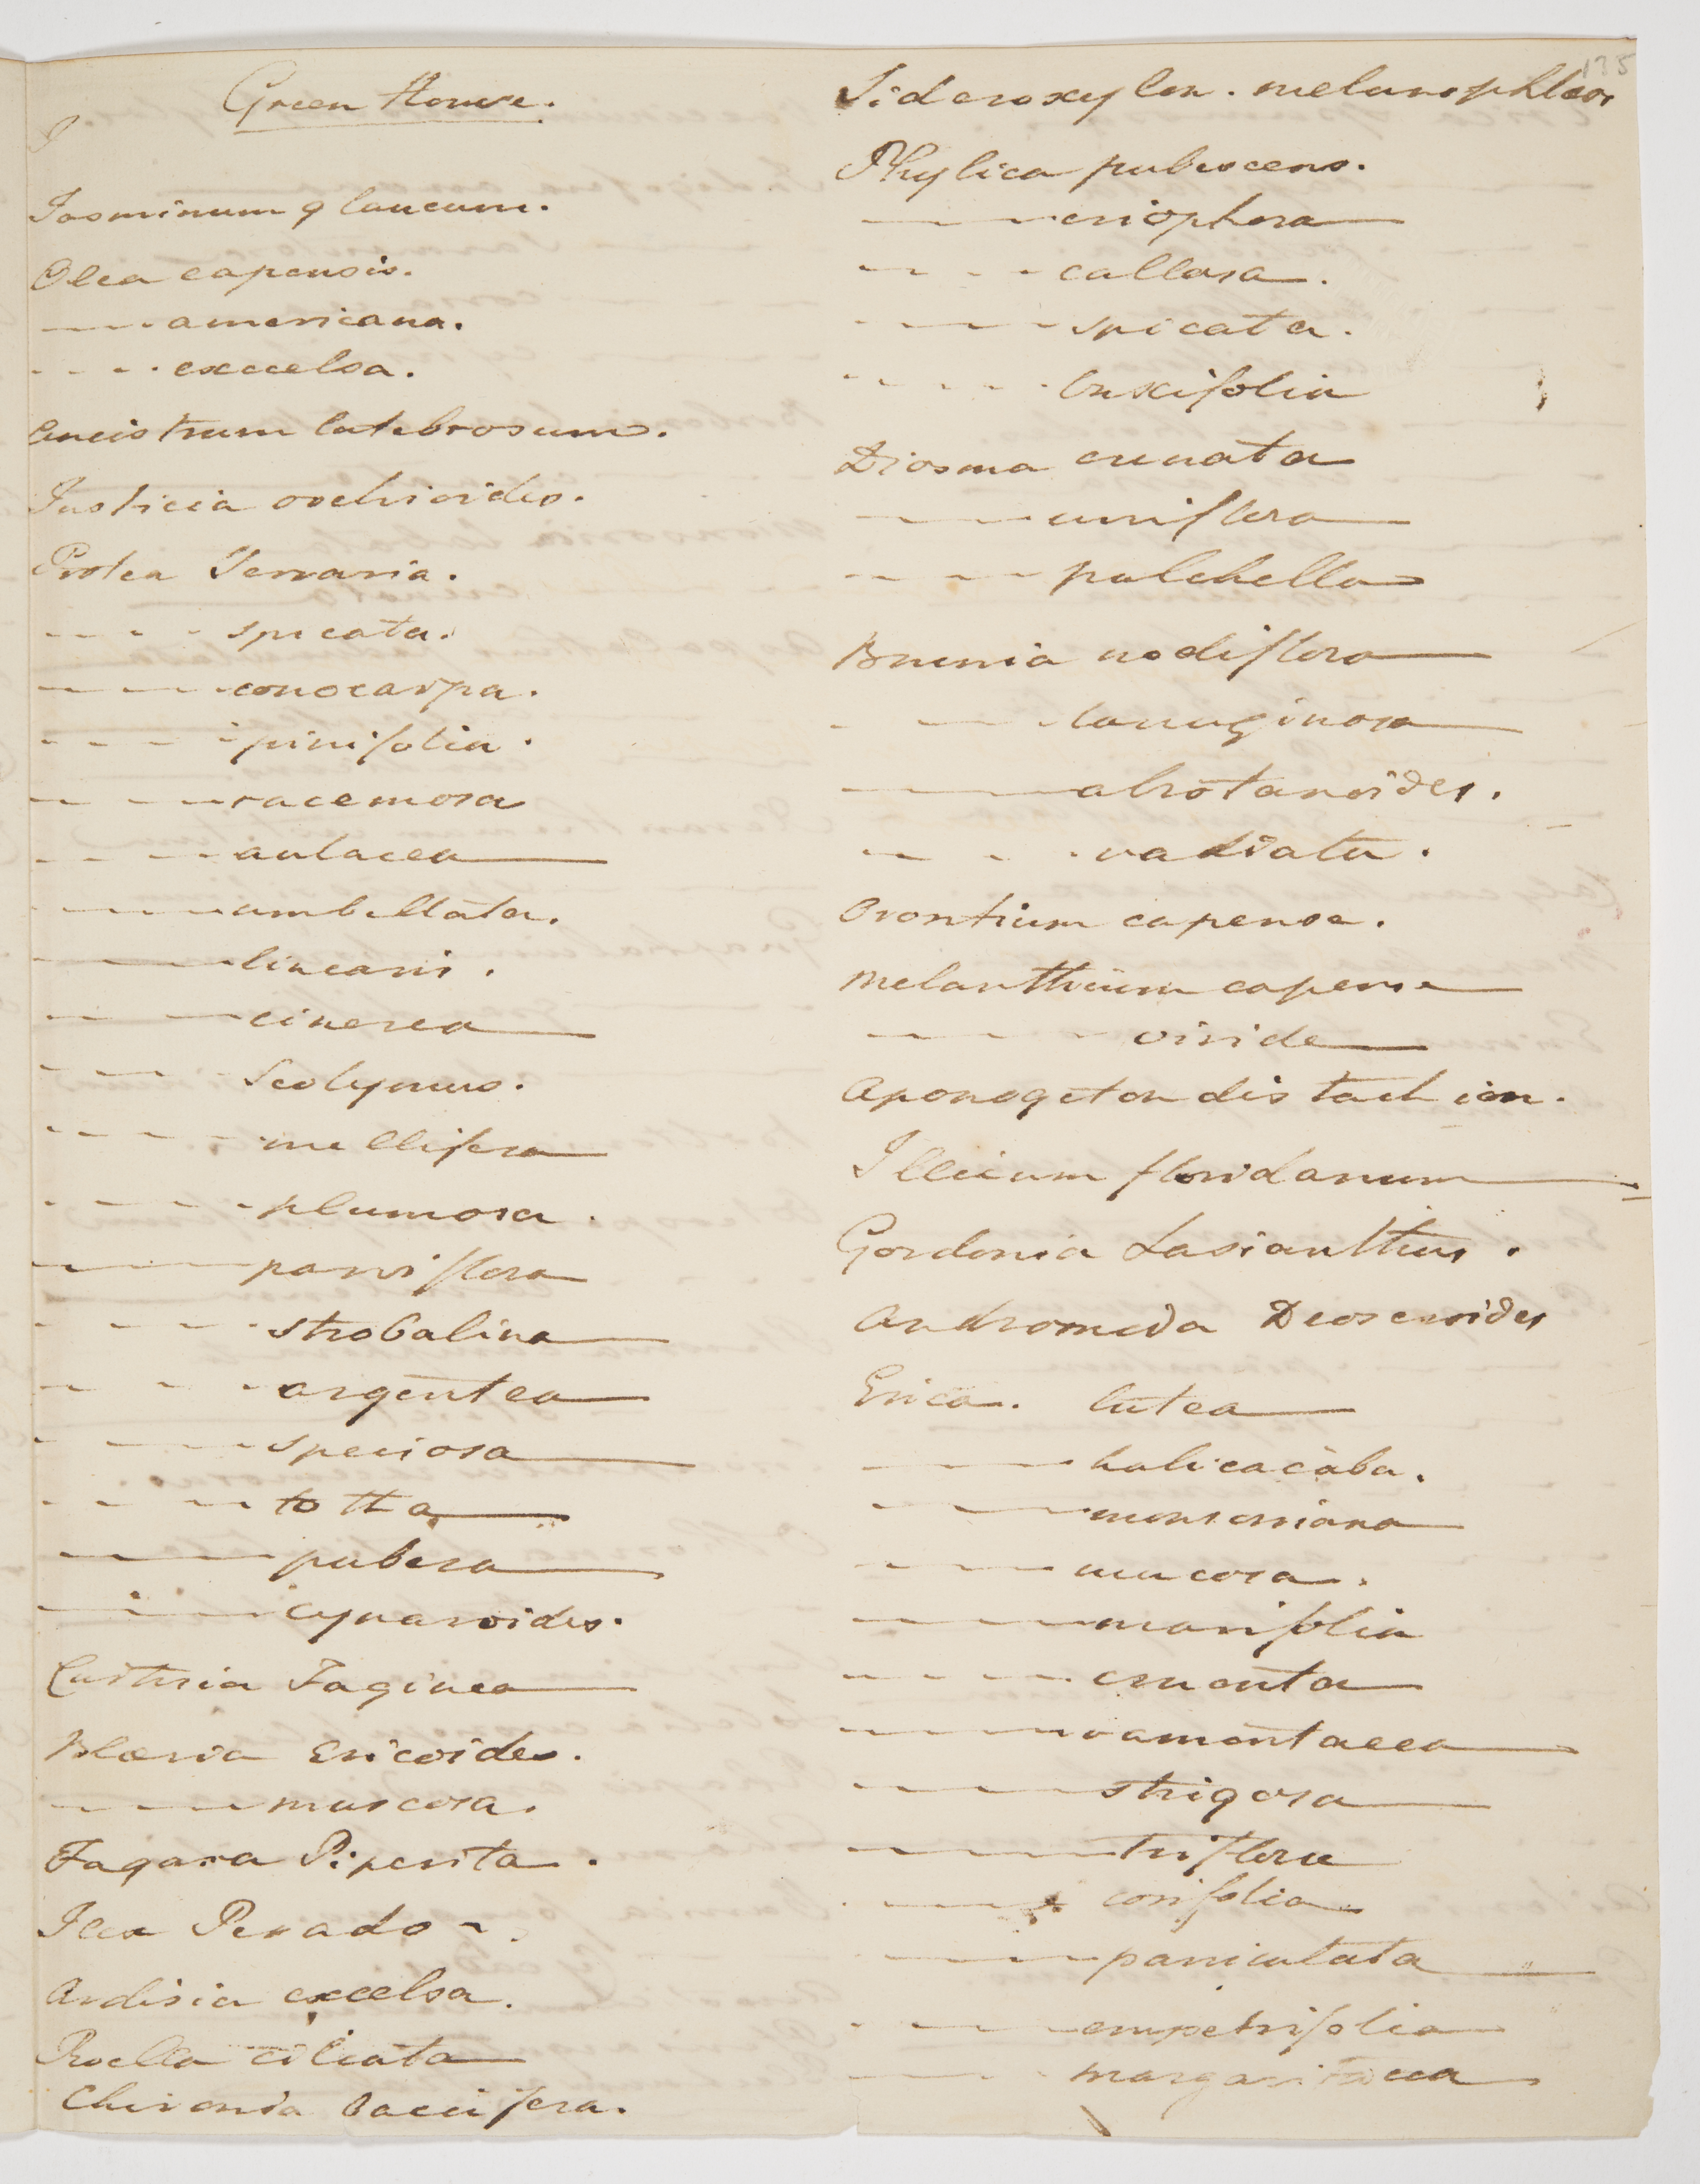 Green House.
J
Jasminum glaucum.
Olea capensis.
---- americana.
- - - - exccelsa.
Ancistrum latebrosum.
Justicia orchioides.
Protea Serraria.
- - - - spicata.
- - - - conocarpa.
- - - - pinifolia.
- - - - racemosa
- - - - aulacea
- - - - umbellata.
- - - - linearis.
- - - - cinerea
- - - - Scolymus.
- - - - mellifera
- - - - plumosa.
- - - - parviflora
- - - - strobalina
- - - - argentea
- - - - speciosa
- - - - totta
- - - - pubera
- - - - Cynaroides.
Curtisia Faginea
Blæria Ericoides.
- - - - muscosa.
Fagara Piperita.
Ilex Perado -.
Ardisia excelsa.
Roella ciliata
Chironia baccifera.
135
Sideroxylon. melanophleos
Phylica pubescens.
- - - - eriophora
- - - - callosa.
- - - - spicata.
- - - - buxifolia
Diosma crenata
- - - - uniflora
- - - - pulchella
Brunia nodiflora
- - - - lanuginosa
- - - - abrotanoides.
- - - - radiata.
Orontium capense.
Melanthium capense
- - - - viride
Aponogeton distachion.
Illicium floridanum
Gordonia Lasianthus.
Andromeda Droseroides
Erica. lutea
- - - - halicacaba.
- - - - monsoniana
- - - - mucosa.
- - - - marifolia
- - - - cruenta
- - - - ramentacea
- - - - strigosa
- - - - triflora
- - - - corifolia
- - - - paniculata
- - - - empetrifolia
- - - - margaritacea